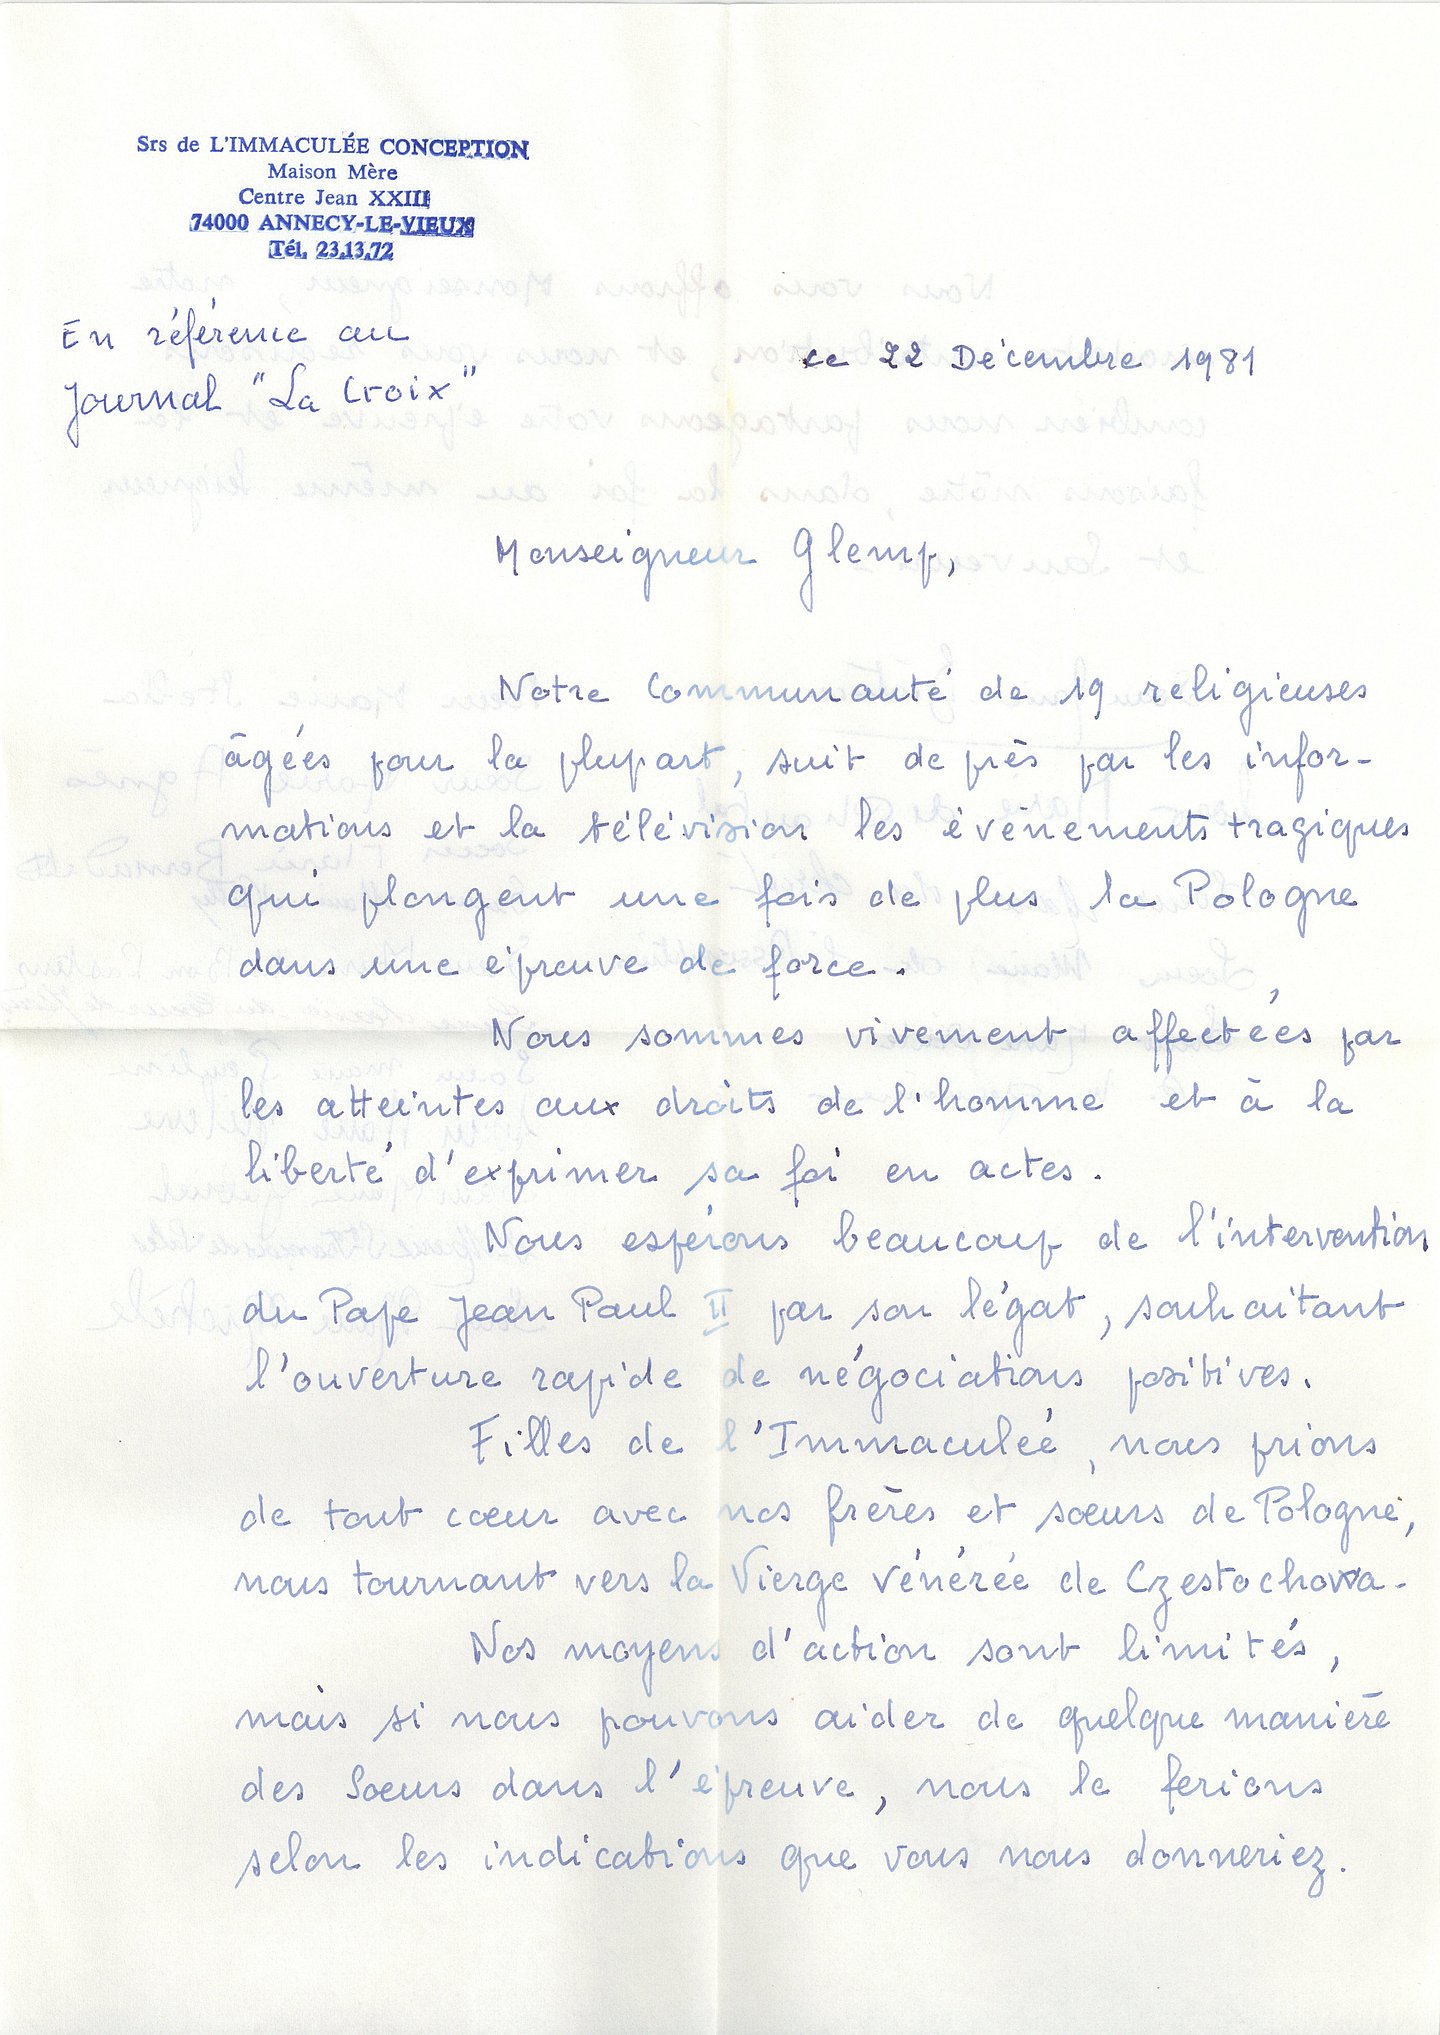 Srs de L'IMMACULÉE CONCEPTION
Maison Mère
Centre Jean XXIII
74000 ANNECY-LE-VIEUX
Tél. 23.13.72
En référence au
Journal "La Croix"
ce 22 Décembre 1981
Monseigneur Glemp,
Notre Communauté de 19 religieuses
âgées pour la plupart, suit de près par les infor-
mations et la télévision les évènements tragiques
qui plongent une fois de plus la Pologne
dans une épreuve de force.
Nous sommes vivement affectées par
les atteintes aux droits de l'homme et à la
liberté d'exprimer sa foi en actes.
Nous espérons beaucoup de l'intervention
du Pape Jean Paul II par son légat, souhaitant
l'ouverture rapide de négociations positives.
Filles de l'Immaculée, nous prions
de tout cœur avec nos frères et sœurs de Pologne,
nous tournant vers la Vierge vénérée de Czestochowa.
Nos moyens d'action sont limités,
mais si nous pouvons aider de quelque manière
des Sœurs dans l'épreuve, nous le ferions
selon les indications que vous nous donneriez.